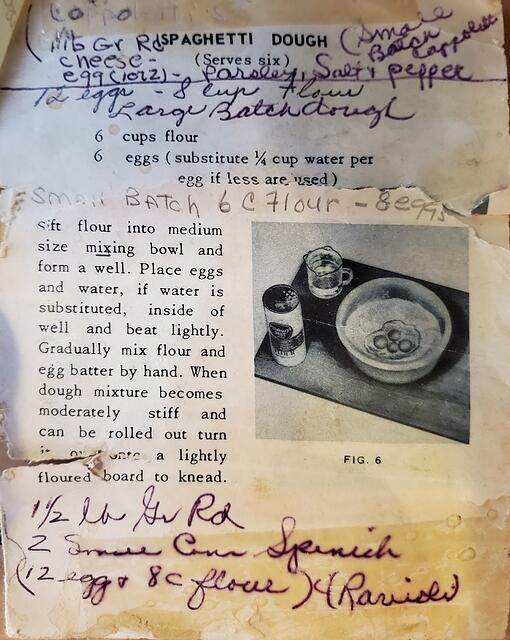 Cappoletti's
1 lb Gr Rd SPAGHETTI DOUGH (Small
Batch
Cappoletti
cheese - (Serves six)
egg (1 or 2) - Parsley, Salt & pepper
12 eggs - 8 cup flour
Large Batch dough
6 cups flour
6 eggs ( substitute ¼ cup water per
egg if less are used )
Small BATCH 6 C Flour - 8 eggs
Sift flour into medium
size mixing bowl and
form a well. Place eggs
and water, if water is
substituted, inside of
well and beat lightly.
Gradually mix flour and
egg batter by hand. When
dough mixture becomes
moderately stiff and
can be rolled out turn
it onto a lightly
floured board to knead.
FIG. 6
1½ lb Gr Rd
2 Small Cans Spinich
(12 eggs 8c flour) (Ravioli)